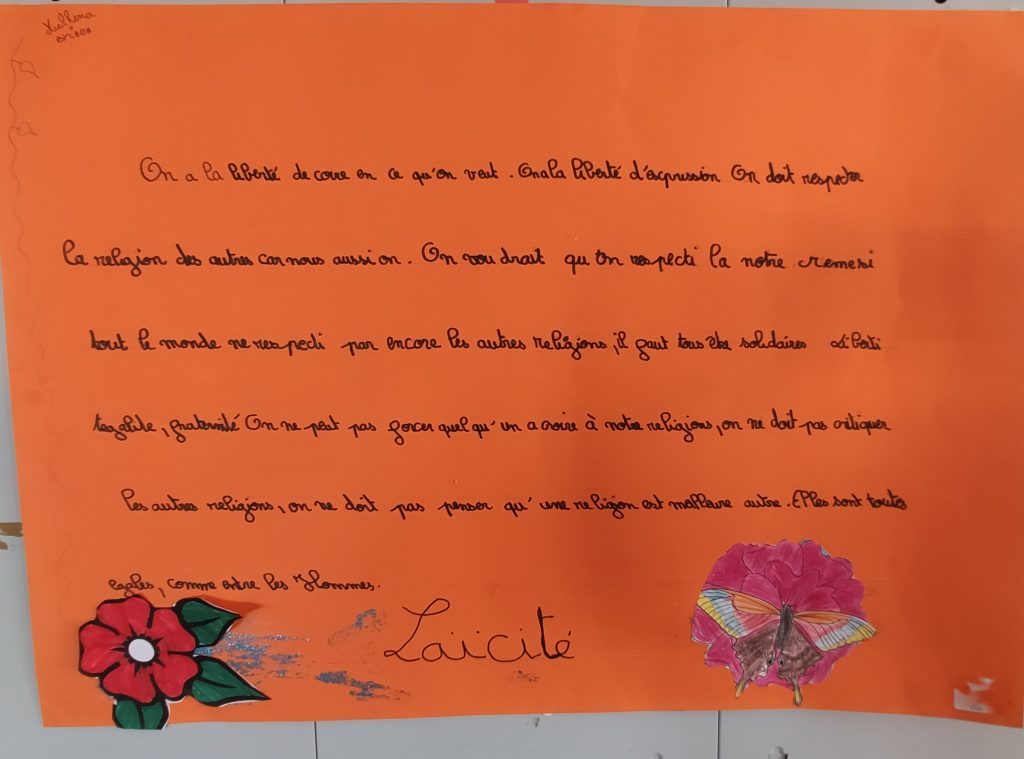 BriANA
On a la liberté de corre en ce qu'on veut. On a la liberté d'expression On doit respecter
la religion des autres car nous aussi on. On voudrait qu'on respecti la notre cremesi
tout le monde ne respecti par encore les autres religions, il faut tous être solidaires Liberti
tegalite, fraternité On ne peut pas forcer quelqu'un a croire à notre religions, on ne doit pas critiquer
les autres religions, on ne doit pas penser qu'une religion est meilleure autre. Elles sont toutes
egales, comme entre les Hommes.
Laïcité